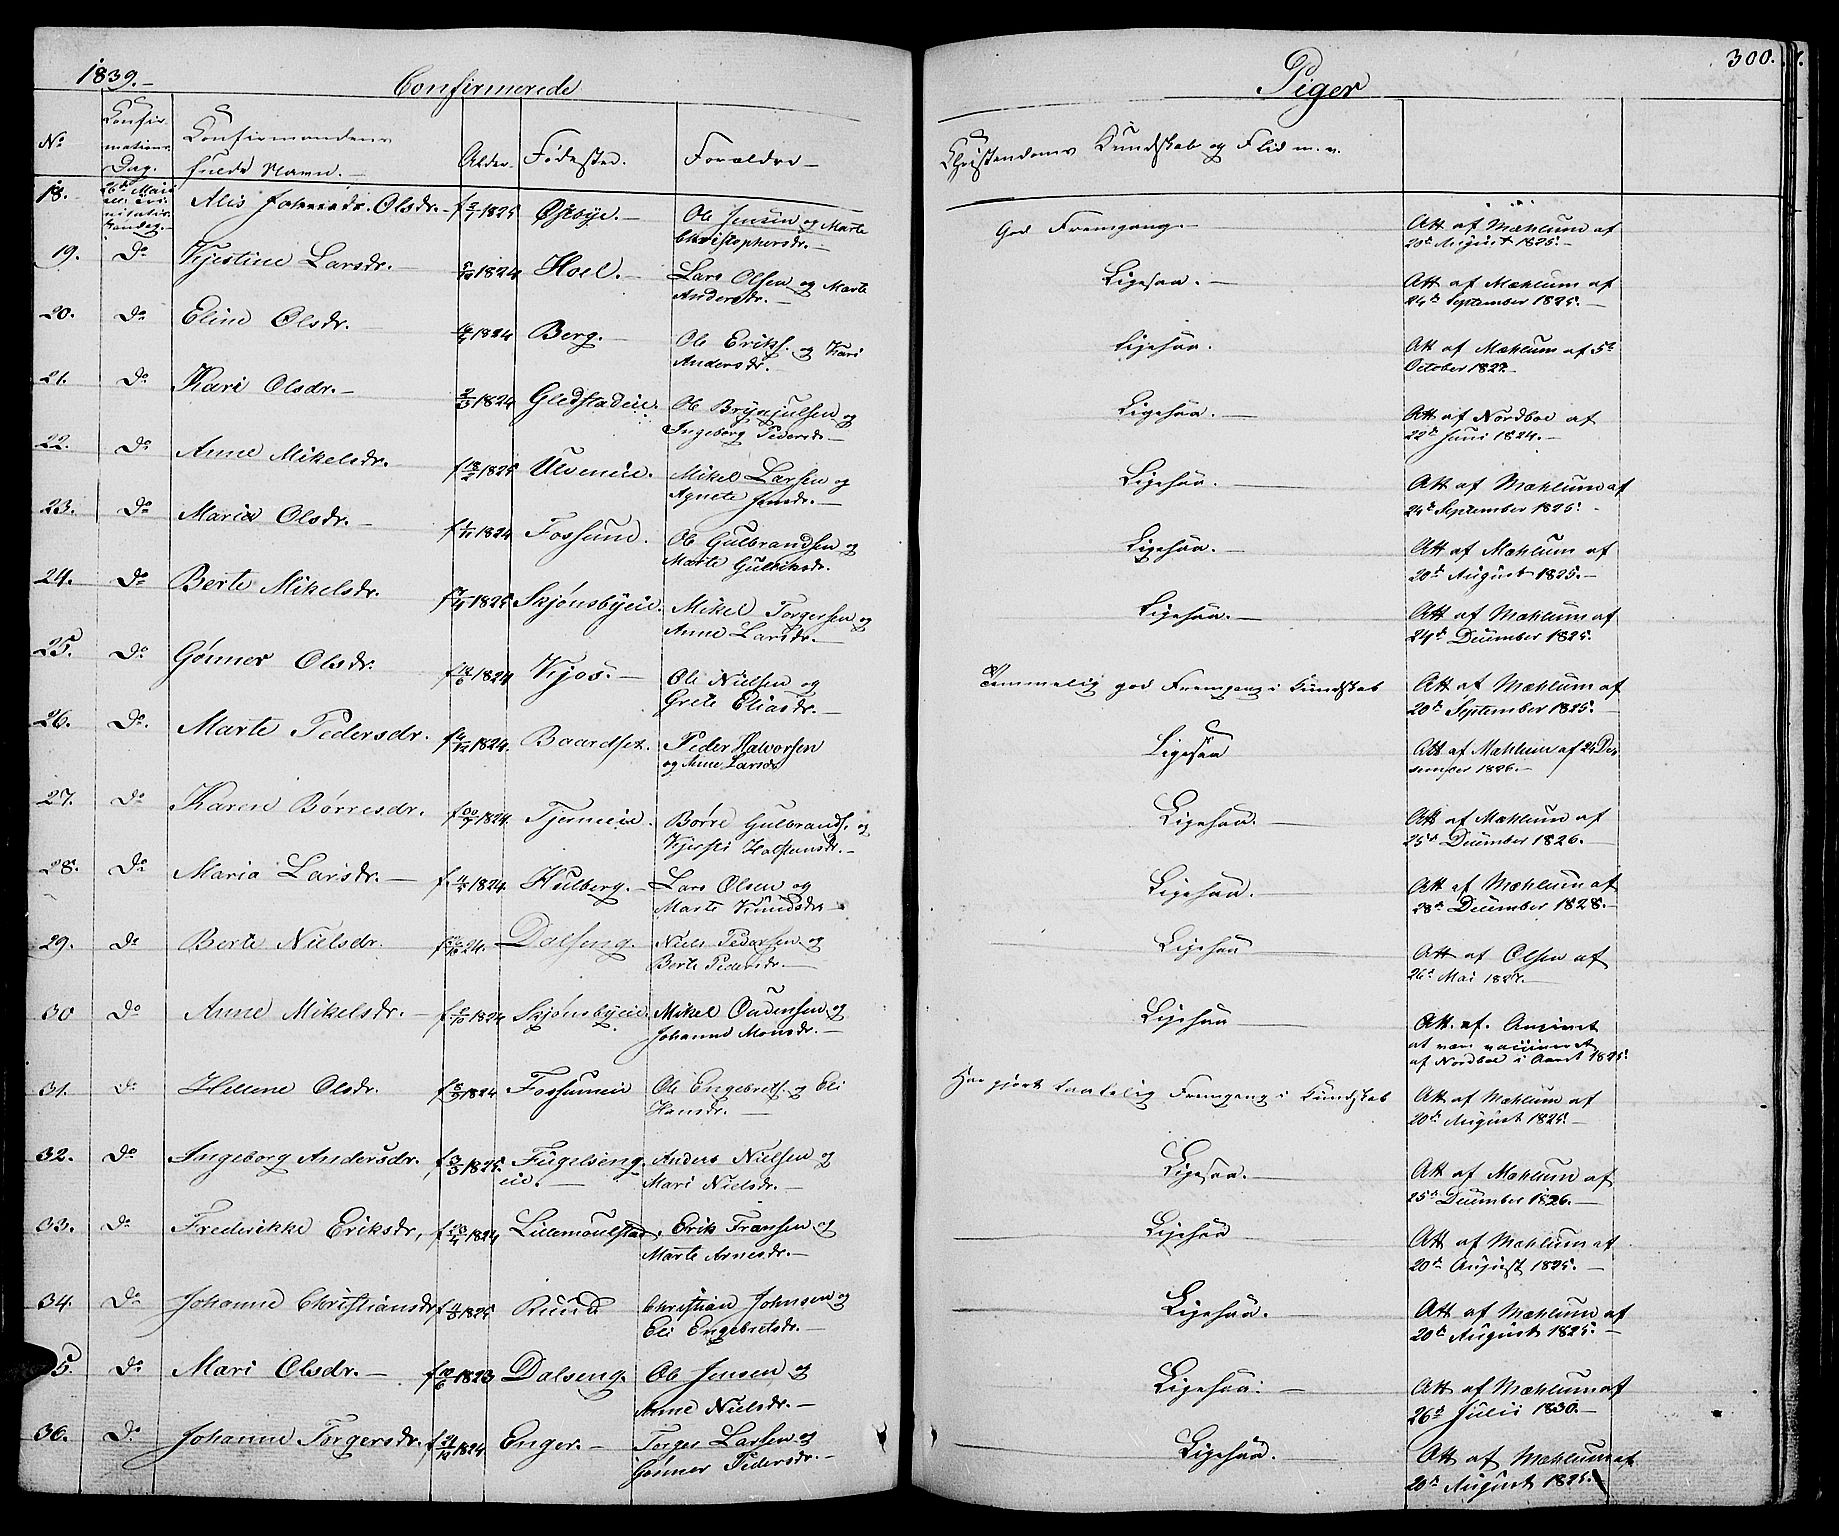 1839.-
Confirmerede
Piger
300.
No
Confir-
mations
Dag.
Confirmandens
fulde Navn.
Alder.
Fødested.
Forældre
Christendoms Kundskab og Flid m. v.
18. 26de Mai Alis Olsdr. f 1825 Østbye. Ole Jensen og Marte
Christophersdr. God Fremgang. Att af Mæhlum af
20de August 1825.
19. Do Kjestine Larsdr. 1824 Hoel. Lars Olsen og Marte
Andersdr. Ligesaa. Att af Mæhlum af
24de September 1825.
20. Do Eline Olsdr. 1824 Berg. Ole Eriks. og Kari
Andersdr. Ligesaa. Att af Mæhlum af 5te
October 1827.
21. Do Kari Olsdr. 1824 Gledstadeie. Ole Brynjulsen og
Ingeborg Pedersdr. Ligesaa. Att af Nordboe af
22de Juni 1824.
22. Do Anne Mikelsdr. f 1825 Ulveneie. Mikel Larsen og
Agnete Jensdr. Ligesaa. Att af Mæhlum af
24de September 1825.
23. Do Maria Olsdr. f 1824 Fossund. Ole Gulbrandsen og
Marte Gulliksdr. Ligesaa. Att af Mæhlum af
20de August 1825.
24. Do Berte Mikelsdr. f 1825 Skjønsbyeie. Mikel Torgersen og
Anne Larsdr. Ligesaa. Att af Mæhlum af
24de December 1825.
25. Do Gønner Olsdr. f 1824 Kjos. Ole Nielsen og
Grete Eliasdr. Temmelig god Fremgang i Kundskab Att af Mæhlum af
20de September 1825.
26. Do Marte Pedersdr. f 1824. Baardset. Peder Halvorsen
og Anne Larsdr Ligesaa Att af Mæhlum af 24 De-
cember 1826.
27. Do Karen Børresdr. f 1824 Tjerneie. Børre Gulbrands. og
Kjersti Halstensdr. Ligesaa. Att af Mæhlum af
25de December 1826.
28. Do Maria Larsdr. f 1824 Hulberg. Lars Olsen og
Marte Knudsdr Ligesaa. Att af Mæhlum af
28de December 1828.
29. Do Berte Nielsdr. f 24. Dalseng. Niels Pedersen og
Berte Pedersdr. Ligesaa Att af Olsen af
26de Mai 1827.
30 Do Anne Mikelsdr. f 1824 Skjønsbyeie. Mikel Oudensen og
Johanne Monsdr. Ligesaa Att. af. Angivet
at være vaccineret
af Nordboe i Aaret 1825.
31. Do Hellene Olsdr. f 1824 Fossumeie Ole Engebrets. og Eli
Hansdr. Har gjort taalelig Fremgang i Kundskab Att af Mæhlum af
20de August 1825.
32. Do Ingeborg Andersdr. f 1825. Fugelseng
eie. Anders Nielsen og
Mari Nielsdr. Ligesaa. Att af Mæhlum af
25de December 1826.
33. Do Frederikke Eriksdr, f 1824 Lillemoulstad. Erik Fransen og
Marte Arnesdr. Ligesaa Att af Mæhlum af
20de August 1825.
34. Do Johanne Christiansdr f 1825 Ruud Christian Johnsen og
Eli Engebretsdr. Ligesaa. Att af Mæhlum af
20de August 1825.
35. Do Mari Olsdr. f 1823 Dalseng. Ole Jensen og
Anne Nielsdr. Ligesaa. Att af Mæhlum af
26de Julii 1830.
36. Do Johanne Torgersdr. f 1824 Enger. Torger Larsen og
Gønner Pedersdr. Ligesaa. Att af Mæhlum af
20de August 1825.